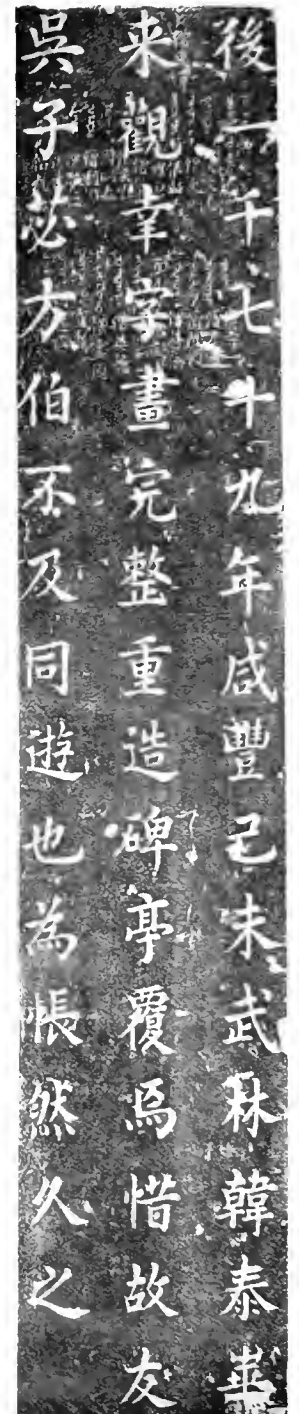 後一千七十九年咸豐己未武林韓泰華
来觀幸字畫完整重造碑亭覆焉惜故友
吳子苾方伯不及同遊也為悵然久之